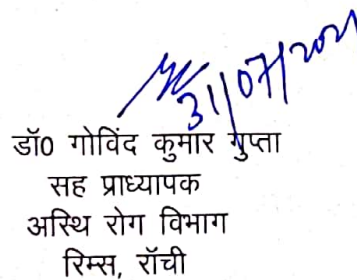 31/07/2021
डॉ0 गोविंद कुमार गुप्ता
सह प्राध्यापक
अस्थि रोग विभाग
रिम्स, रॉची